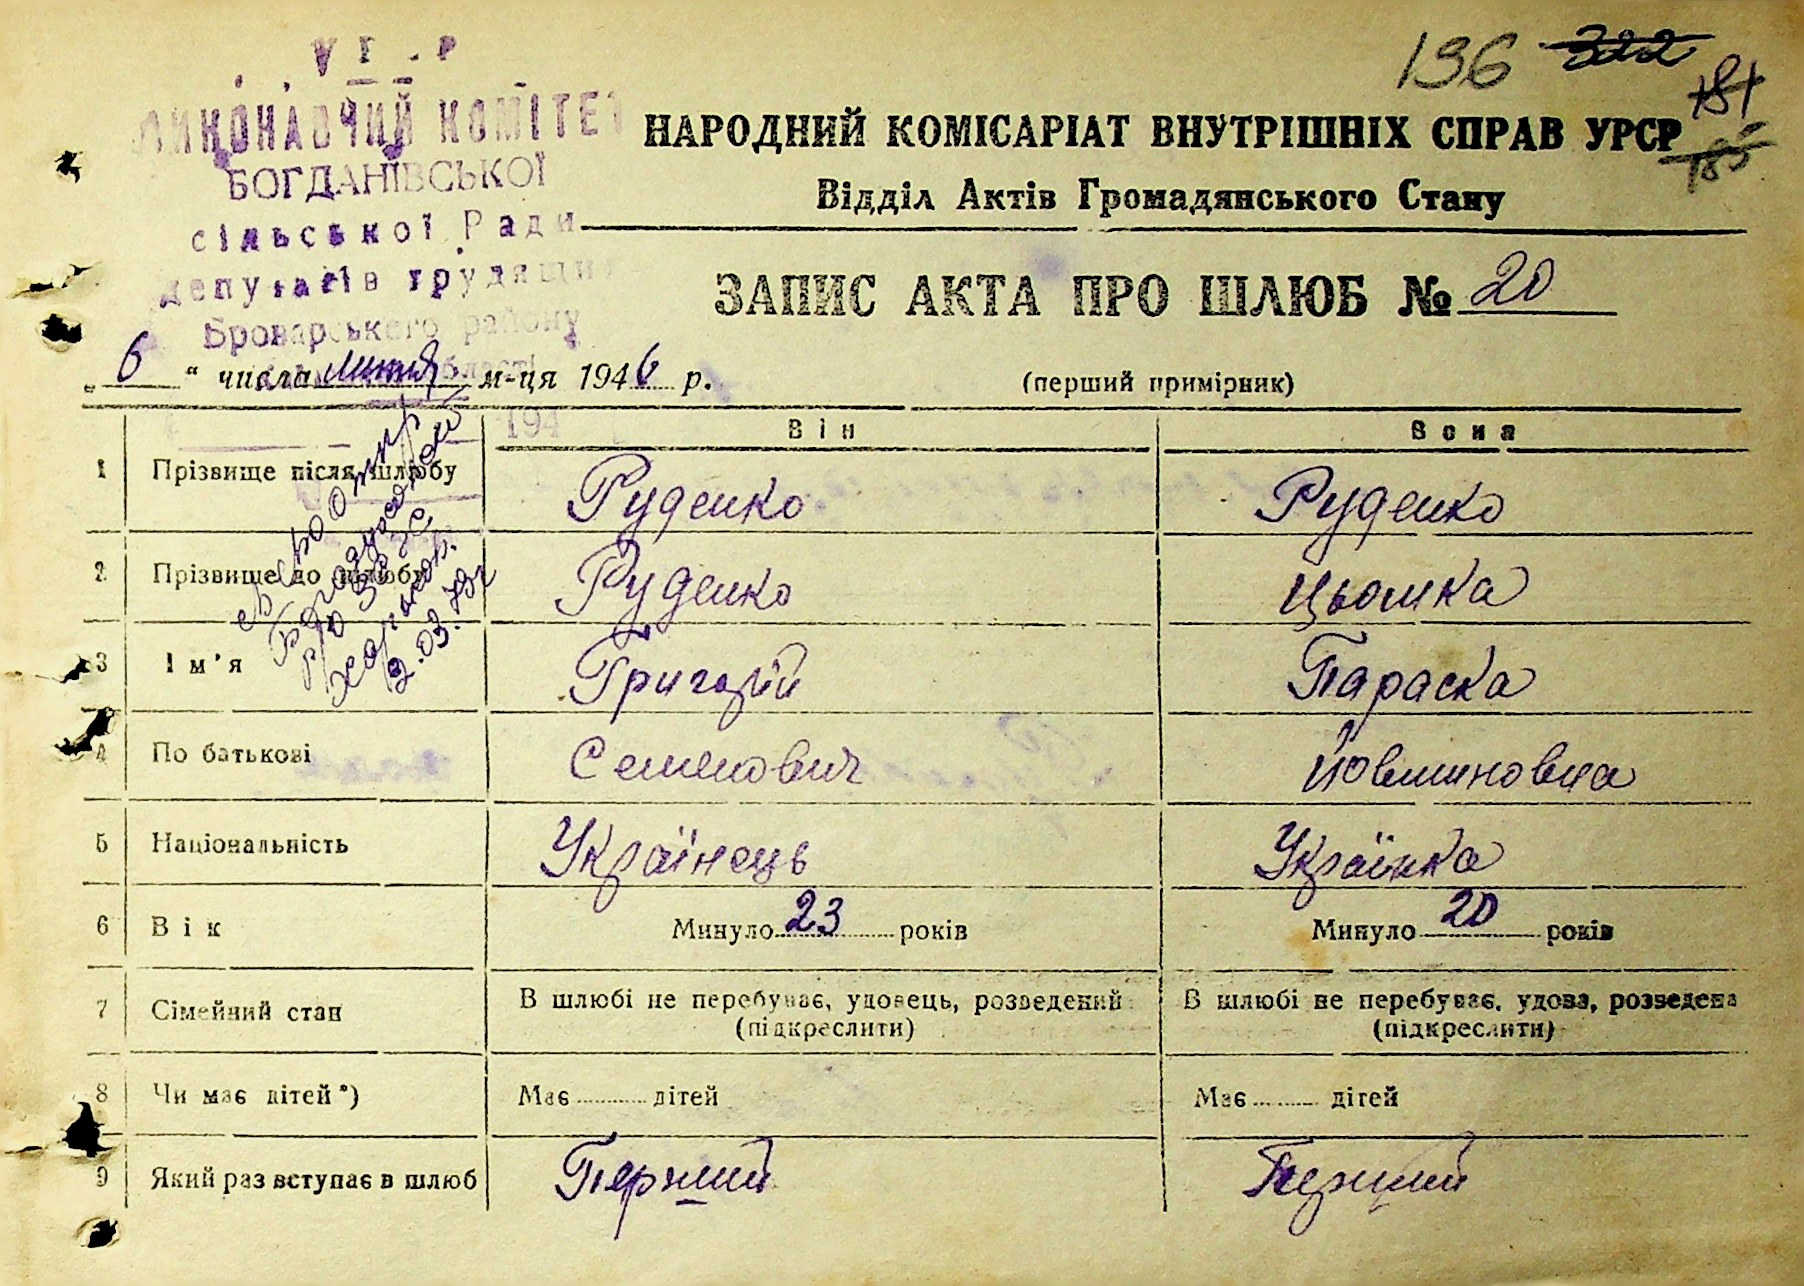 136 322
181
185
ВИКОНАВЧИЙ КОМІТЕТ
БОГДАНІВСЬКОЇ
сільської Ради
депутатів трудящих
Броварського району
НАРОДНИЙ КОМІСАРІАТ ВНУТРІШНІХ СПРАВ УРСР
Відділ Актів Громадянського Стану
ЗАПИС АКТА ПРО ШЛЮБ № 20
„ 6 “ числа липня м-ця 1946 р.
(перший примірник)
194
Він Вона
1 Прізвище після шлюбу Руденко Руденко
2 Прізвище до шлюбу Руденко Цьомка
3 Ім'я Григорій Параска
4 По батькові Семенович Йовминовна
5 Національність Українець Українка
6 Вік Минуло 23 років Минуло 20 років
7 Сімейний стан В шлюбі не перебуває, удовець, розведений В шлюбі не перебуває, удова, розведена
(підкреслити) (підкреслити)
8 Чи має дітей*) Має дітей Має дітей
9 Який раз вступає в шлюб Перший Перший
ЗАГС
2.03.73г